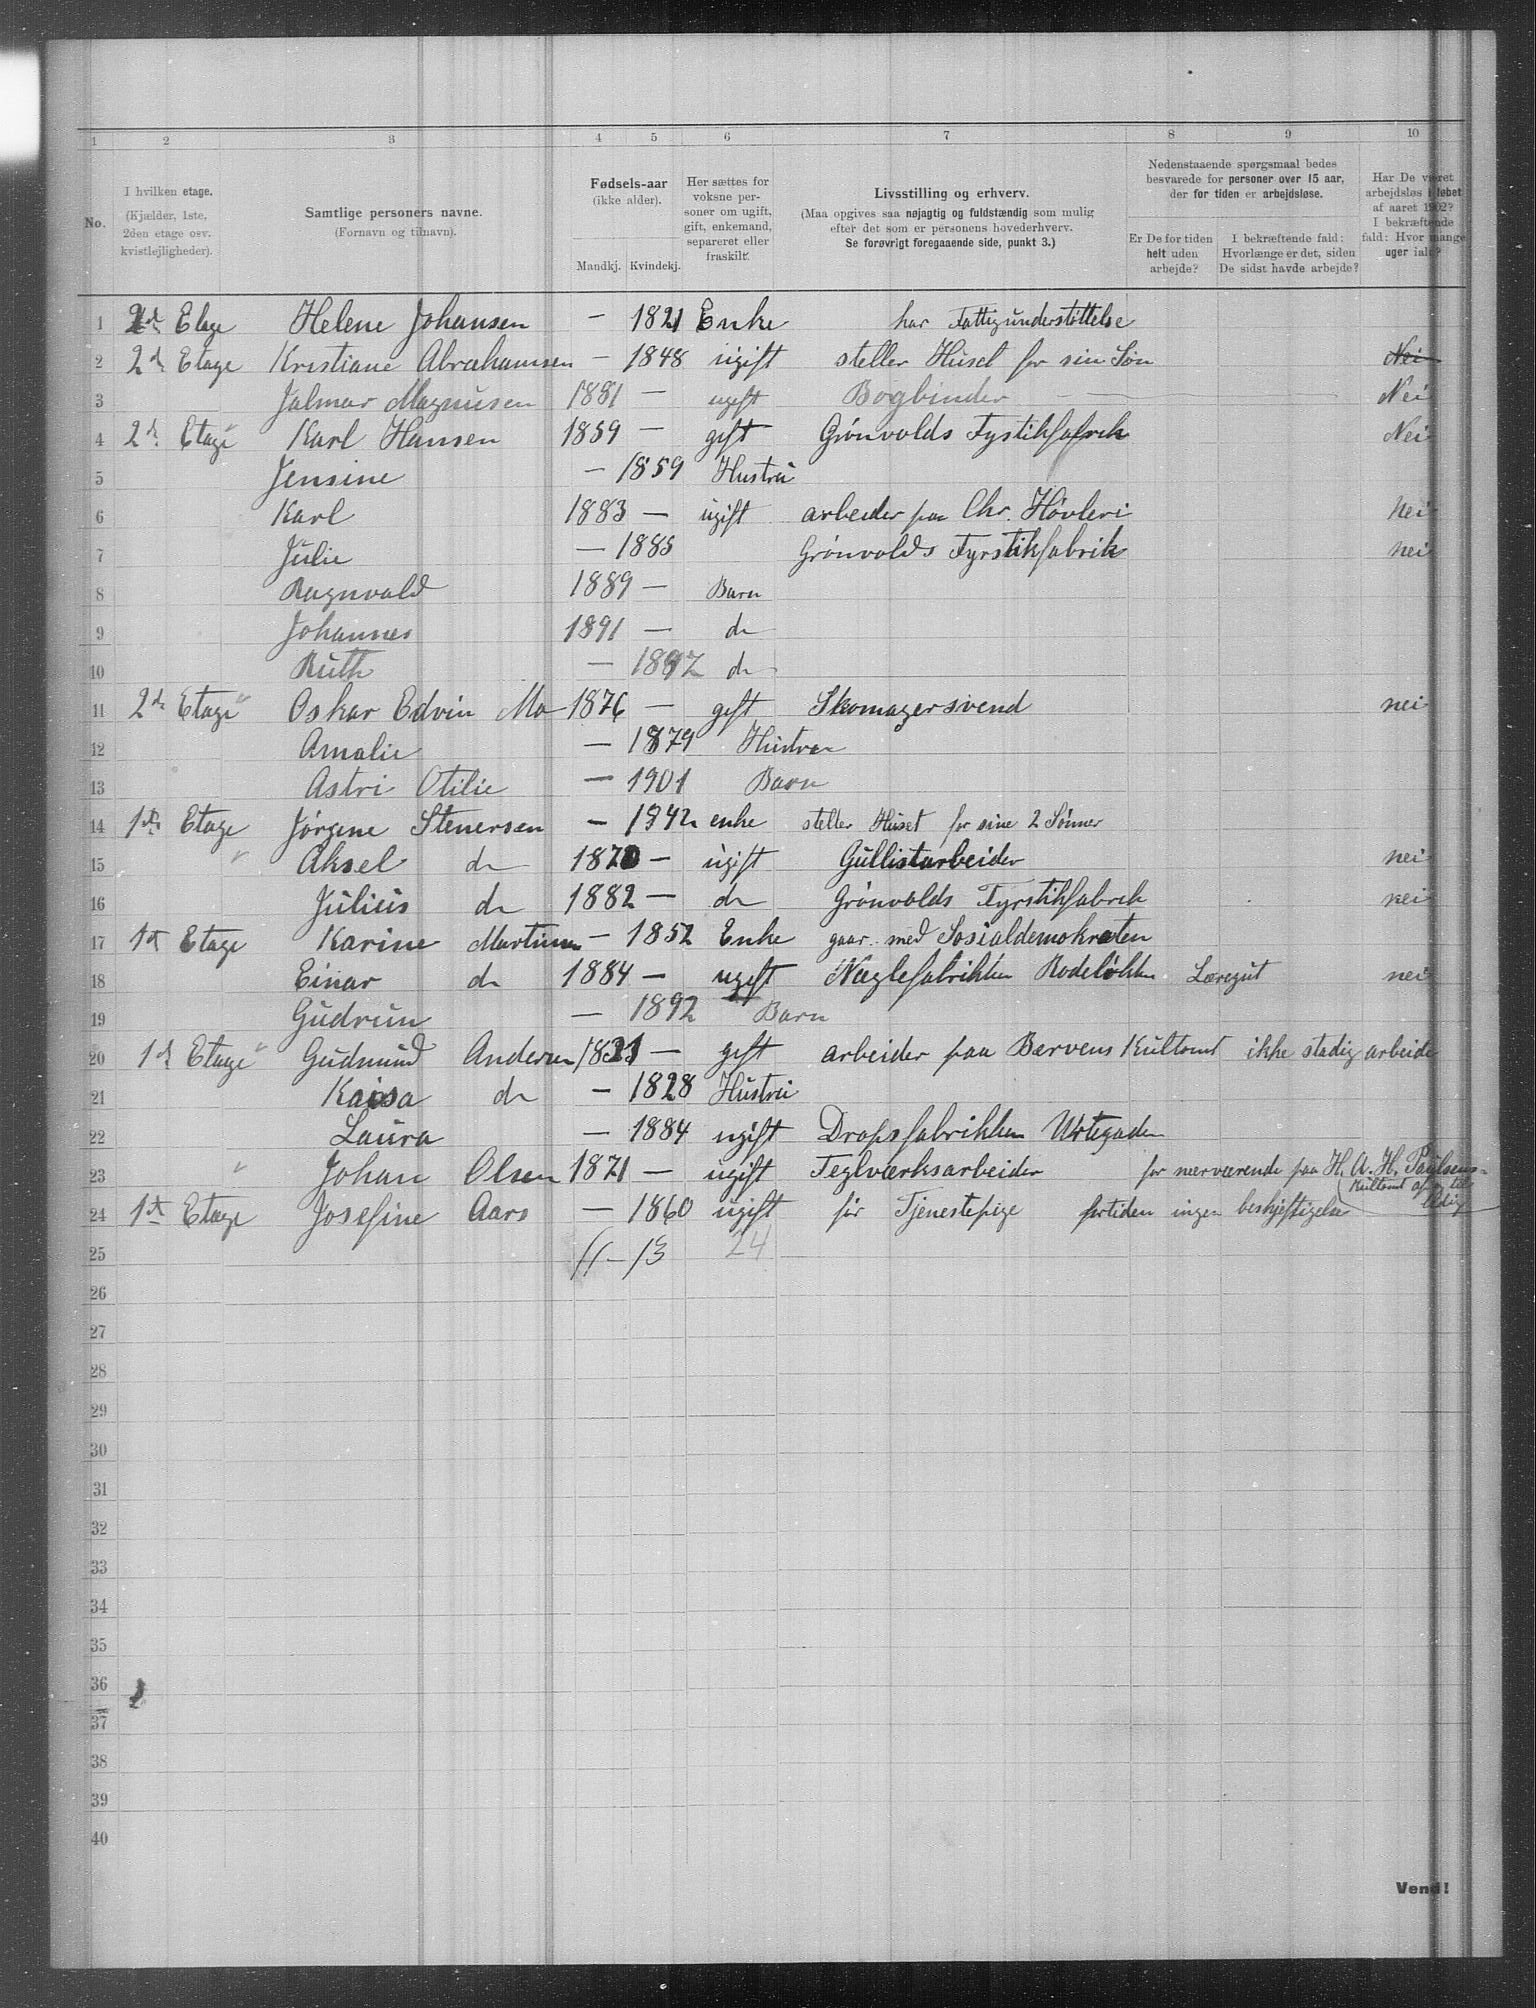 1 2 3 4 5 6 7 8 9 10
No.
I hvilken etage.
(Kjælder, 1ste,
2den etage osv.
kvistlejligheder).
Samtlige personers navne.
(Fornavn og tilnavn).
Fødsels-aar
(ikke alder).
Mandkj. Kvindekj.
Her sættes for
voksne per-
soner om ugift,
gift, enkemand,
separeret eller
fraskilt.
Livsstilling og erhverv.
(Maa opgives saa nøjagtig og fuldstændig som mulig
efter det som er personens hovederhverv.
Se forøvrigt foregaaende side, punkt 3.)
Nedenstaaende spørgsmaal bedes
besvarede for personer over 15 aar,
der for tiden er arbejdsløse.
Er De for tiden
helt uden
arbejde?
I bekræftende fald:
Hvorlænge er det, siden
De sidst havde arbejde?
Har De været
arbejdsløs i løbet
af aaret 1902?
I bekræftende
fald: Hvor mange
uger ialt?
1 2d Etage Helene Johansen – 1821 Enke har Fattigunderstøttelse
2 2d Etage Kristiane Abrahamsen – 1848 ugift steller Huset for sin Søn Nei
3 Jalmar Magnusen 1881 – ugift Bogbinder – Nei
4 2d Etage Karl Hansen 1859 – gift Grønvolds Fystikfabrik Nei
5 Jensine – 1859 Hustru
6 Karl 1883 – ugift arbeider paa Chr. Høvleri nei
7 Julie – 1885 Grønvolds Fyrstikfabrik nei
8 Ragnvald 1889 – Barn
9 Johannes 1891 – do
10 Ruth – 1897 do
11 2d Etage Oskar Edvin Mo 1876 – gift Skomagersvend nei
12 Amalie – 1879 Hustru
13 Astri Otilie – 1901 Barn
14 1st Etage Jørgine Stenersen – 1842 enke steller Huset for sine 2 Sønner
15 " Aksel do 1870 – ugift Gullistarbeider nei
16 Julius do 1882 – do Grønvolds Fyrstikfabrik nei
17 1st Etage Karine Martinsen – 1852 Enke gaar med Sosialdemokraten
18 Einar do 1884 – ugift Naglefabrikken Rodeløkken Læregut nei
19 Gudrun – 1892 Barn
20 1st Etage Gudmund Andersen 1831 – gift arbeider paa Bærvens Kultomt ikke stadig arbeide
21 Kaisa do – 1828 Hustru
22 Laura – 1884 ugift Dropsfabrikken Urtegaden
23 " Johan Olsen 1871 – ugift Teglværksarbeider for nærværende paa H. A. H. Paulsens
Kultomt af og til
ledig
24 1st Etage Josefine Aars – 1860 ugift før Tjenestepige fortiden ingen beskjeftigelse
25 11 – 13 24
26
27
28
29
30
31
32
33
34
35
36
37
38
39
40
Vend!